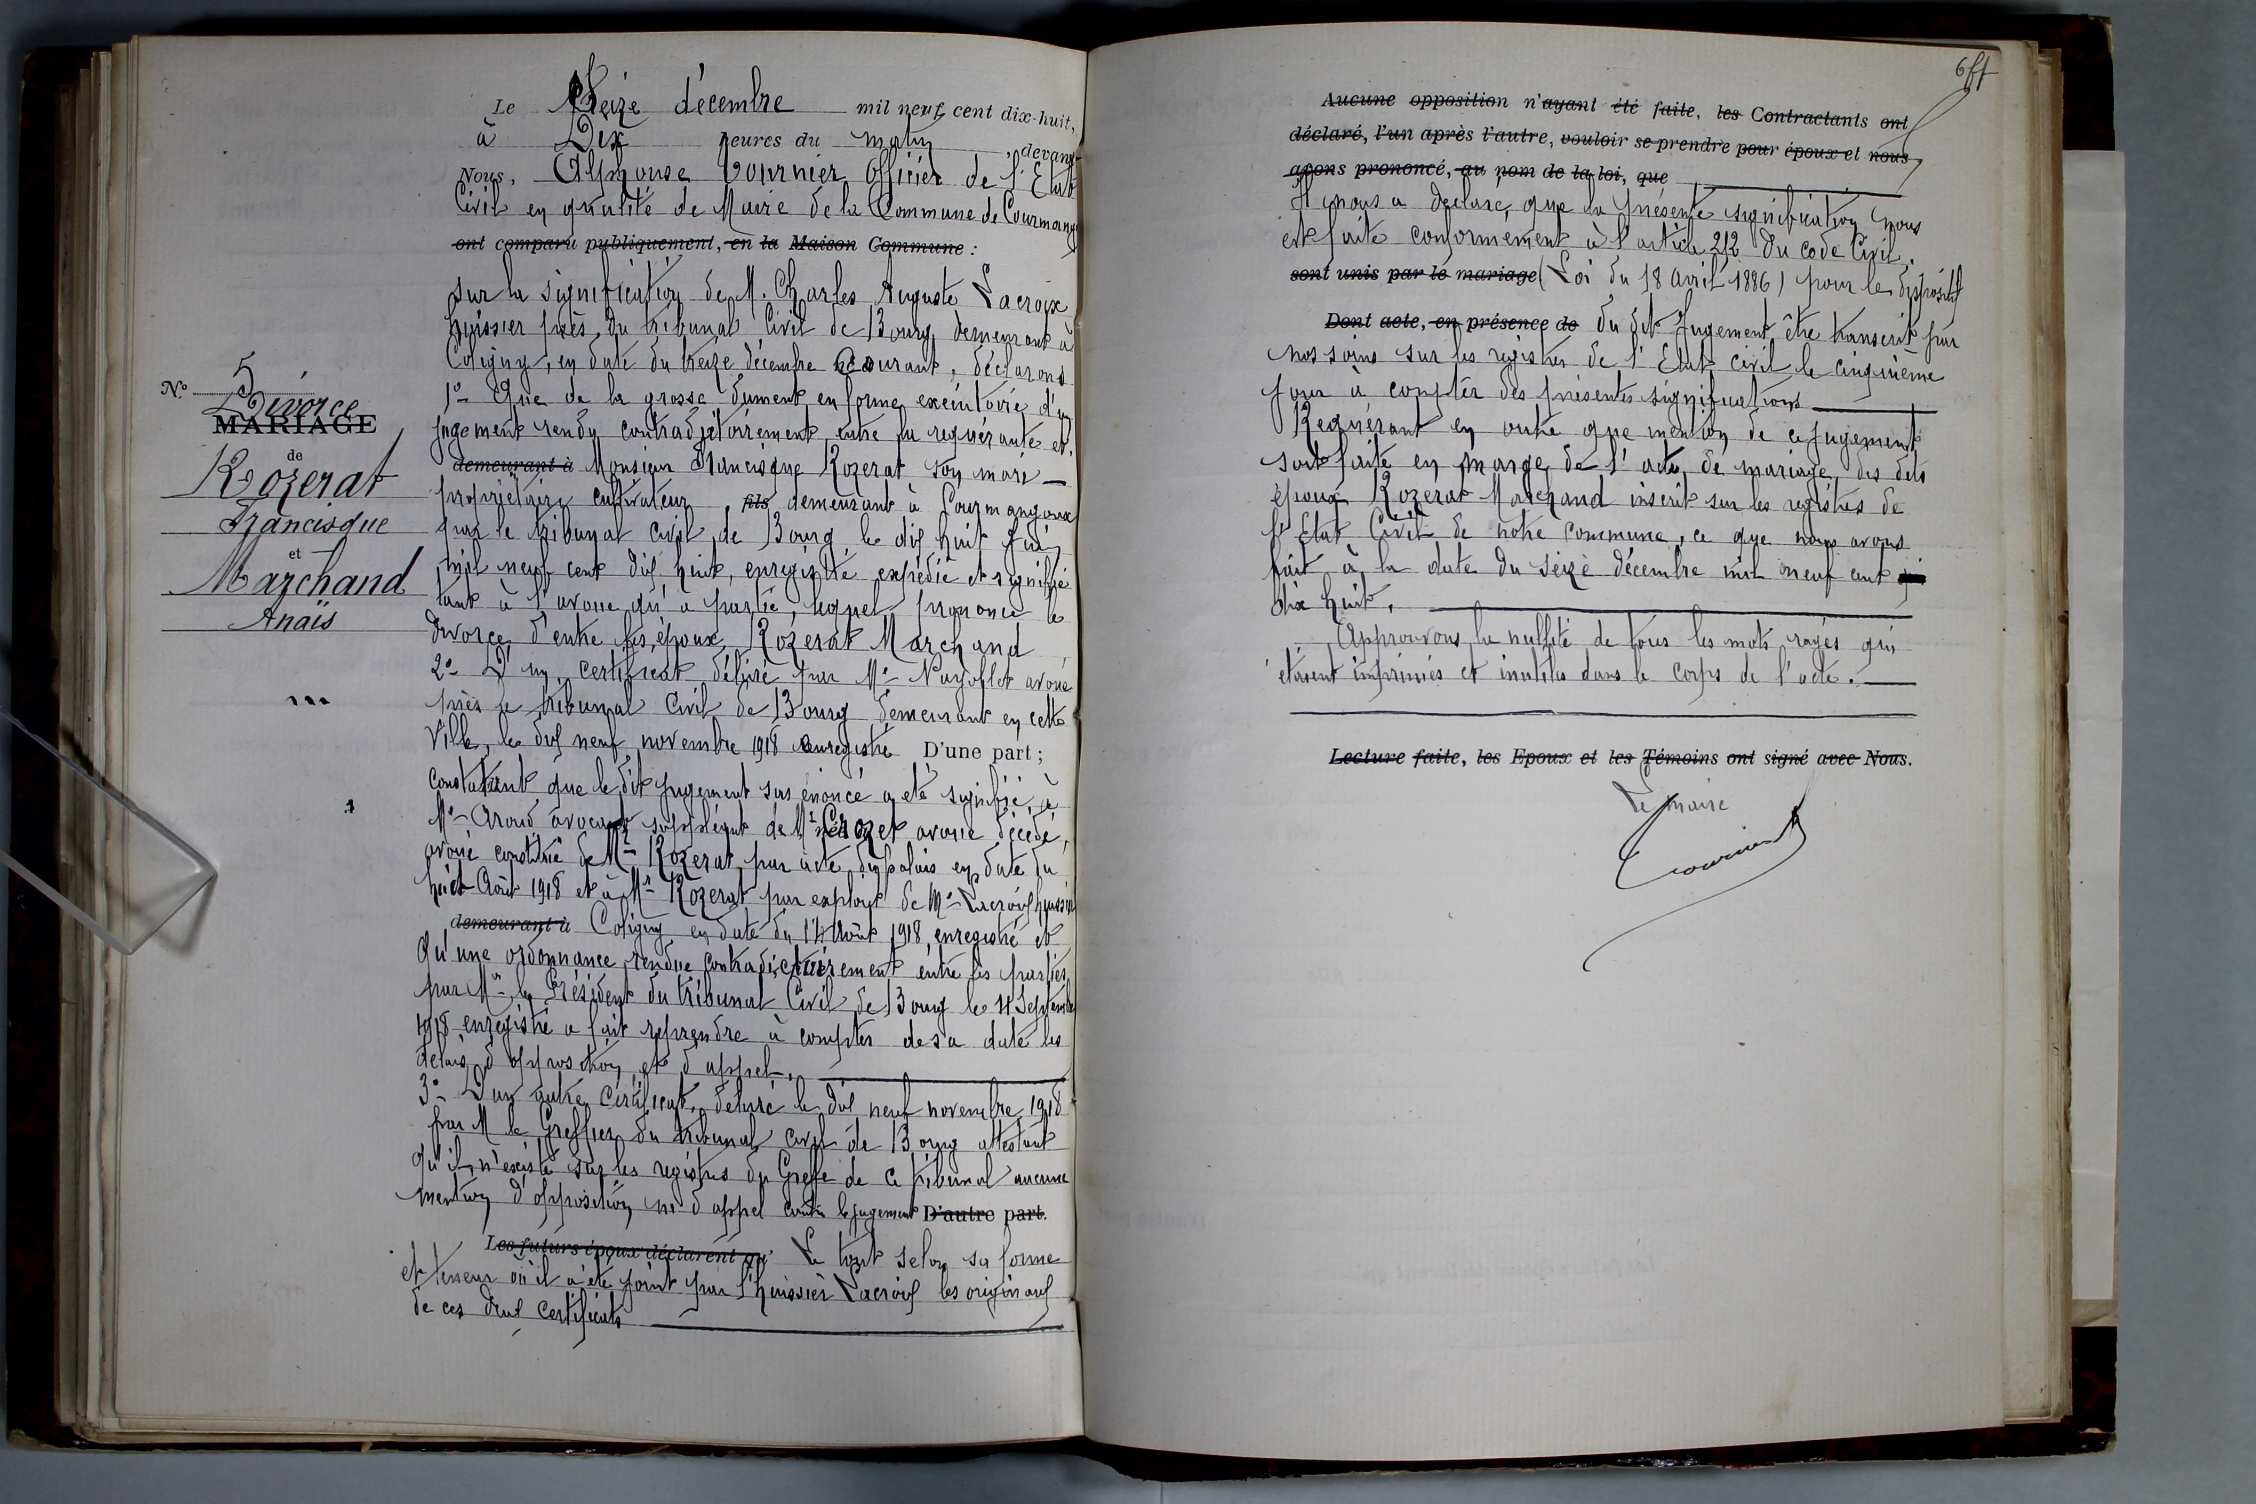 Le Seize décembre mil neuf cent dix-huit,
à Dix heures du matin, devant
Nous, Alphonse Tournier Officier de l'Etat
Civil en qualité de Maire de la Commune de Courmangoux
ont comparu publiquement, en la Maison Commune :
sur la signification de M. Charles Auguste Lacroix
huissier près du tribunal Civil de Bourg demeurant à
Coligny, en date du treize décembre courant, déclarons
1º Que de la grosse dument en forme exécutoire d'un
jugement rendu contradictoirement entre la requérante et
demeurant à Monsieur Francisque Rozerat son mari
propriétaire cultivateur fils demeurant à Courmangoux
par le tribunal civil de Bourg le dix huit Juin
mil neuf cent dix huit, enregistré expédié et signifié
tant à l'avoué qu'à partie, lequel prononce le
divorce d'entre les époux Rozerat Marchand
2º D'un certificat délivré par Me avoué
près le tribunal Civil de Bourg demeurant en cette
Ville, le dix neuf novembre 1918 enregistré D'une part ;
constatant que le dit jugement sus énoncé a été signifié, à
Me avocat suppléant de Me Crozet avoué décédé,
avoué constitué de Mr Rozerat par acte du palais en date du
huit Août 1918 et à Mr Rozerat par exploit de Me Lacroix huissier
demeurant à Coligny en date du 14 Août 1918, enregistré et
Qu'une ordonnance rendue contradictoirement entre les parties
par Mr le Président du tribunal Civil de Bourg le 4 Septembre
1918 enregistré a fait reprendre à compter de sa date les
délais d'opposition et d'appel.
3º D'un autre certificat, délivré le dix neuf novembre 1918
par M le Greffier du tribunal civil de Bourg attestant
qu'il n'existe sur les registres du Greffe de ce tribunal aucune
mention d'opposition ni d'appel contre le jugement D'autre part.
Les futurs époux déclarent qu' Le tout selon sa forme
et teneur où il a été joint par l'huissier Lacroix les originaux
de ces deux certificats
Nº 5
Divorce
MARIAGE
de
Rozerat
Francisque
et
Marchand
Anaïs
6
Aucune opposition n'ayant été faite, les Contractants ont
déclaré, l'un après l'autre, vouloir se prendre pour époux et nous
avons prononcé, au nom de la loi, que
Il nous a déclaré, que la présente signification nous
est faite conformément à l'article 212 du code Civil.
sont unis par le mariage (Loi du 18 avril 1886) pour le dispositif
Dont acte, en présence de du dit Jugement être transcrit par
nos soins sur les registres de l'Etat civil le cinquième
jour à compter des présentes significations
Requérant en outre que mention de ce jugement
soit faite en marge de l'acte de mariage des dits
époux Rozerat Marchand inscrit sur les registres de
l'Etat Civil de notre commune, ce que nous avons
fait à la date du seize décembre mil neuf cent
dix huit.
Approuvons la nullité de tous les mots rayés qui
étaient imprimés et inutiles dans le corps de l'acte.
Lecture faite, les Epoux et les Témoins ont signé avec Nous.
Le maire
Tournier